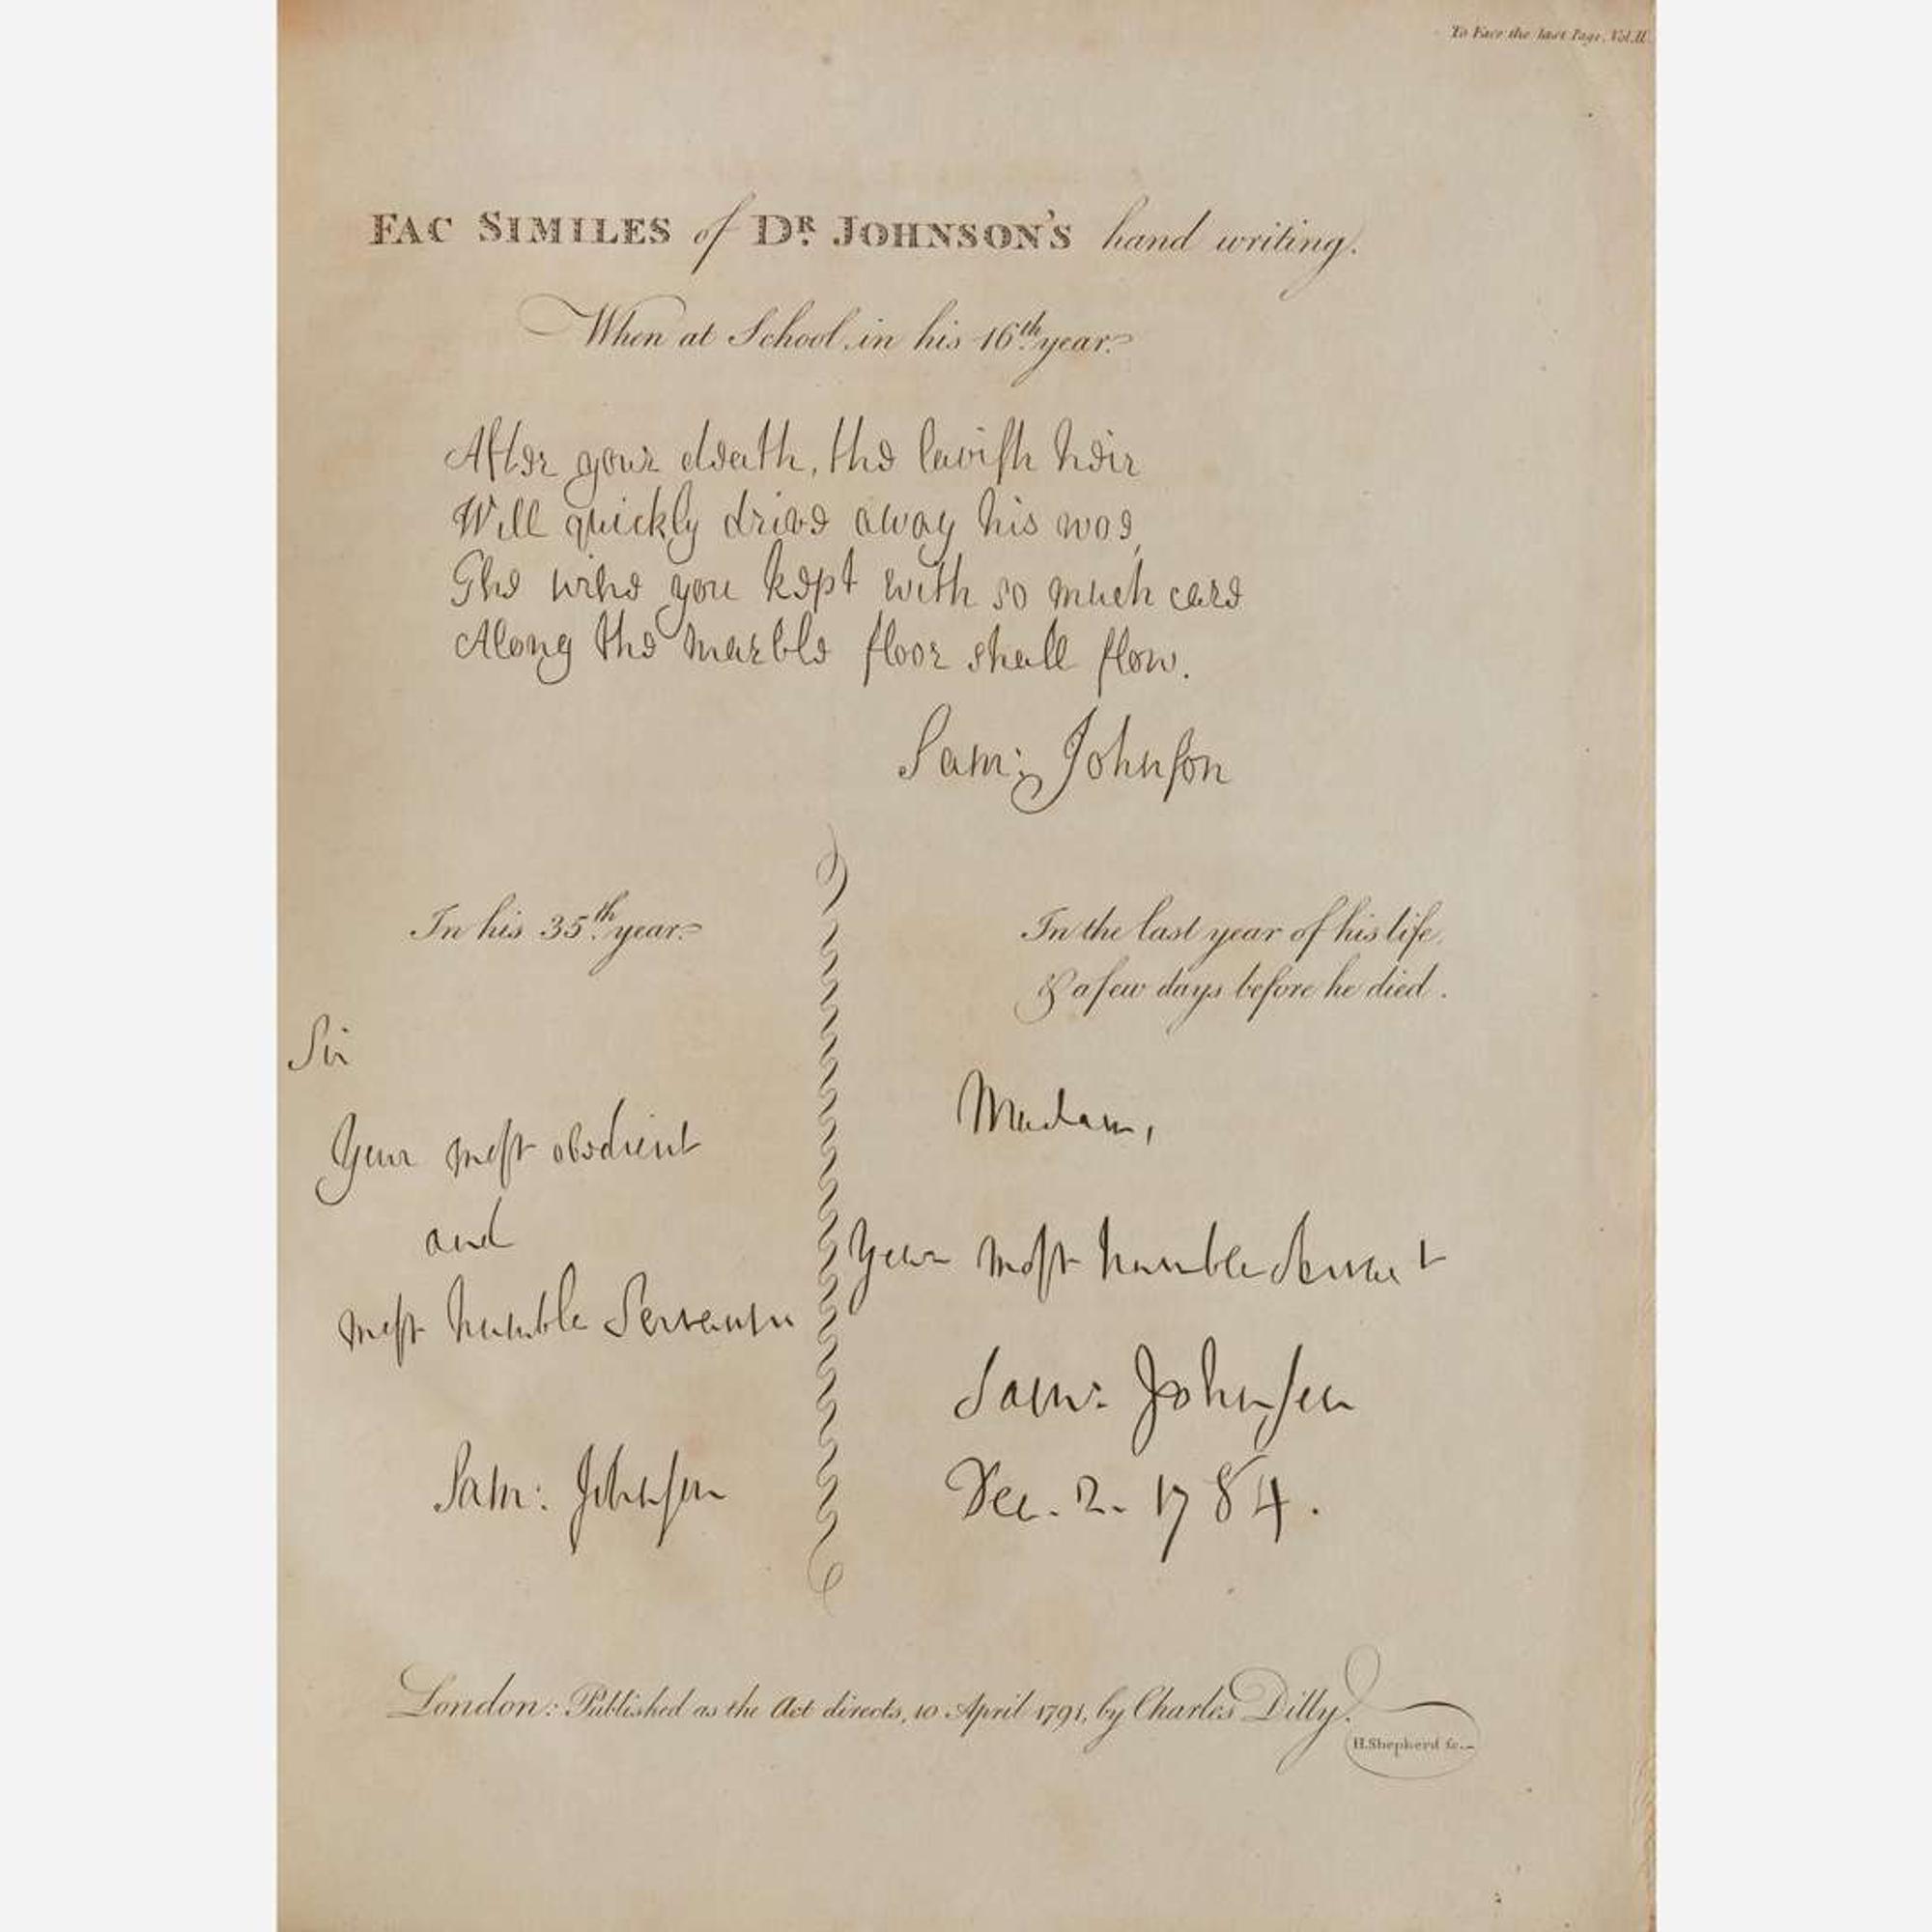 To Face the last Page, Vol. II.
FAC SIMILES of DR. JOHNSON'S hand writing.
When at School in his 16th. year.
After your death, the laviſh heir
Will quickly drive away his woe,
The wine you kept with so much care
Along the marble floor shall flow.
Sam: Johnſon
In his 35th. year.
Sir
Your moſt obedient
and
moſt humble Servant
Sam: Johnſon
In the last year of his life,
& a few days before he died.
Madam,
Your moſt humble Servant
Sam: Johnſon
Dec. 2. 1784.
London: Published as the Act directs, 10 April 1791, by Charles Dilly.
H. Shepherd ſc.